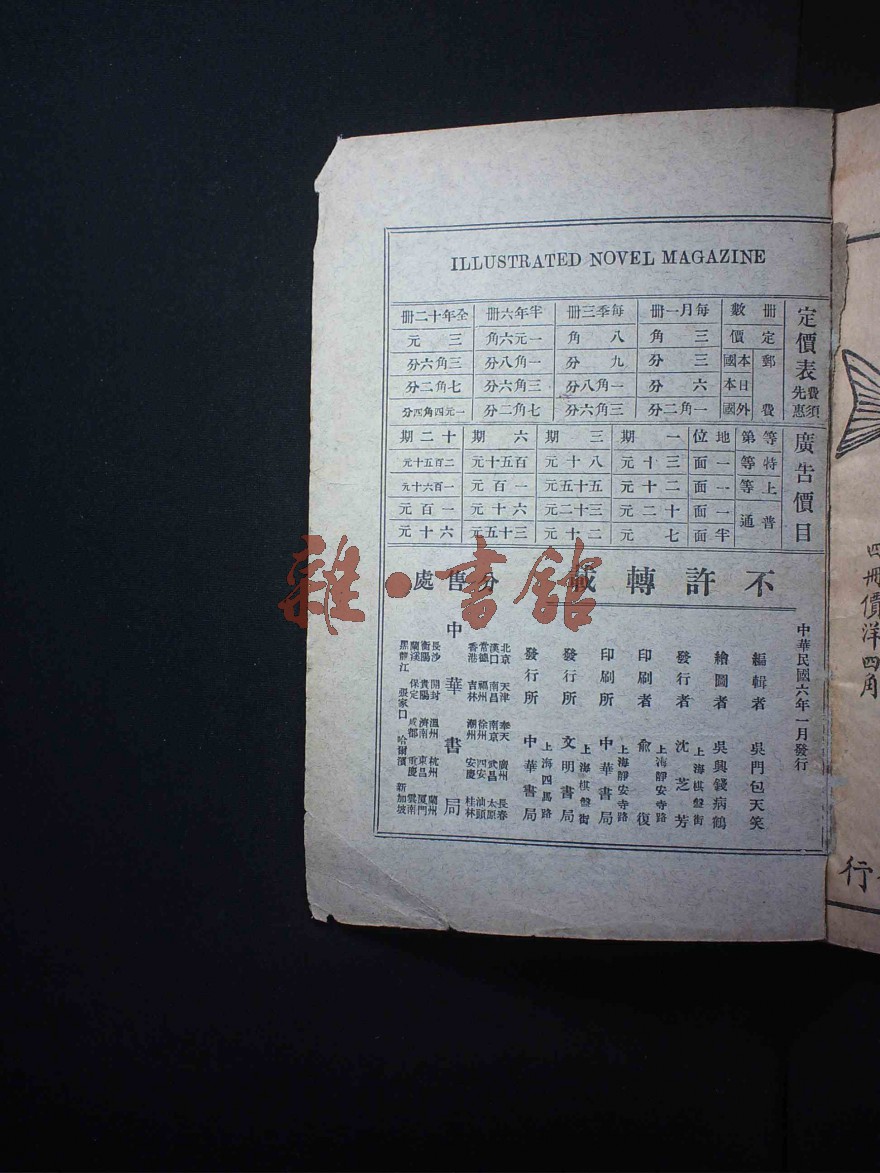 ILLUSTRATED NOVEL MAGAZINE
定價表 費須先惠
冊數 每月一冊 每季三冊 半年六冊 全年十二冊
定價 三角 八角 一元六角 三元
郵費 本國 三分 九分 一角八分 三角六分
日本 六分 一角八分 三角六分 七角二分
外國 一角二分 三角六分 七角二分 一元四角四分
廣告價目
等第 地位 一期 三期 六期 十二期
特等 一面 三十元 八十元 百五十元 二百五十元
上等 一面 二十元 五十五元 一百元 一百六十元
普通 一面 十二元 三十二元 六十元 一百元
半面 七元 二十元 三十五元 六十元
不許轉載
中華民國六年一月發行
編輯者 吳門包天笑
繪圖者 吳興錢病鶴
發行者 上海棋盤街 沈芝芳
印刷者 上海靜安寺路 俞復
印刷所 上海靜安寺路 中華書局
發行所 上海棋盤街 文明書局
發行所 上海四馬路 中華書局
分售處
北京 天津 奉天 廣州 長春
漢口 南昌 南京 武昌 太原
常德 福州 徐州 四安 汕頭
香港 吉林 潮州 安慶 桂林
中華書局
長沙 開封 溫州 杭州 蘭州
衡陽 貴陽 濟南 東昌 厦門
蘭谿 保定 成都 重慶 雲南
黑龍江 張家口 哈爾濱 新加坡
四冊價洋四角
行
雜·書館